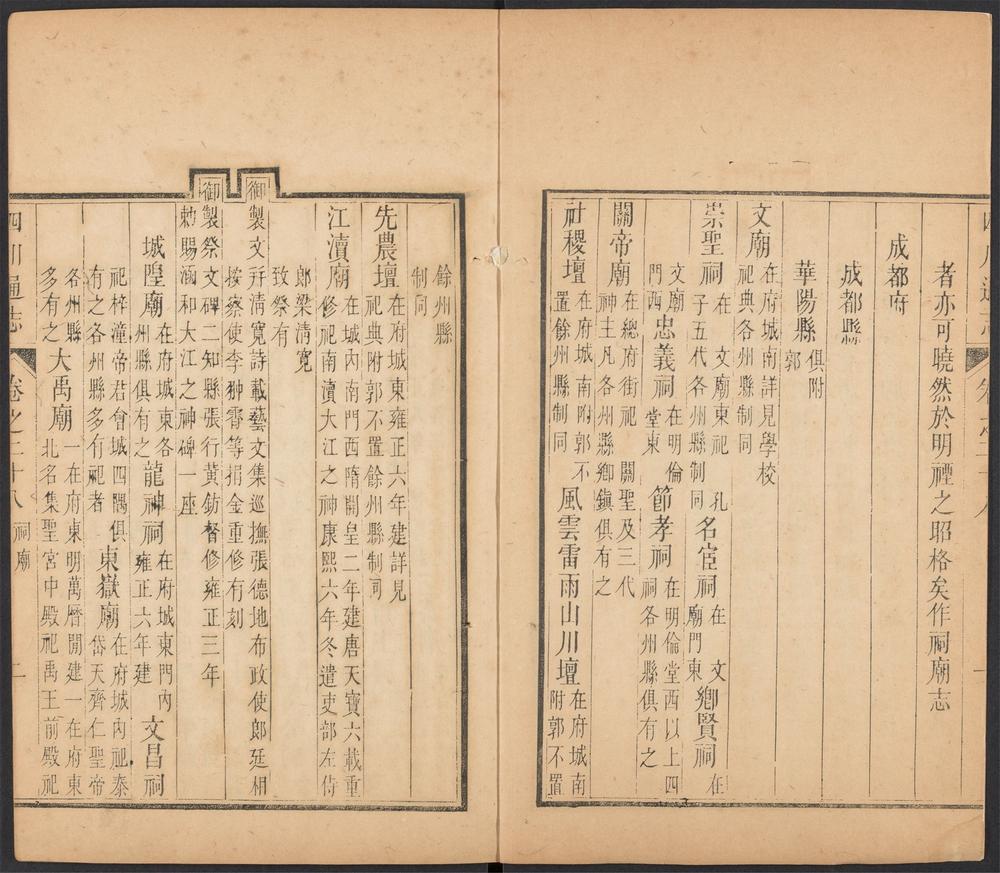 四川通志
者亦可曉然於明禋之昭格矣作祠廟志
成都府
成都縣
華陽縣 俱附
郭
文廟 在府城南詳見學校
祀典各州縣制同
崇聖祠 在 文廟東祀 孔
子五代各州縣制同
名宦祠 在 文
廟門東
鄉賢祠 在
文廟
門西
忠義祠 在明倫
堂東
節孝祠 在明倫堂西以上四
祠各州縣俱有之
關帝廟 在總府街祀 關聖及三代
神主凡各州縣鄉鎮俱有之
社稷壇 在府城南附郭不
置餘州縣制同
風雲雷雨山川壇 在府城南
附郭不置
餘州縣
制同
先農壇 在府城東雍正六年建詳見
祀典附郭不置餘州縣制同
江瀆廟 在城內南門西隋開皇二年建唐天寶六載重
修祀南瀆大江之神康熙六年冬遣吏部左侍
郎梁清寬
致祭有
御製文幷清寬詩載藝文集巡撫張德地布政使郎廷相
按察使李翀霄等捐金重修有刻
御製祭文碑二知縣張行黃鈁督修雍正三年
勅賜涵和大江之神碑一座
城隍廟 在府城東各
州縣俱有之
龍神祠 在府城東門內
雍正六年建
文昌祠
祀梓潼帝君會城四隅俱
有之各州縣多有祀者
東嶽廟 在府城內祀泰
岱天齊仁聖帝
各州縣
多有之
大禹廟 一在府東明萬曆間建一在府東
北名集聖宮中殿祀禹王前殿祀
四川通志 卷之二十八 祠廟 二